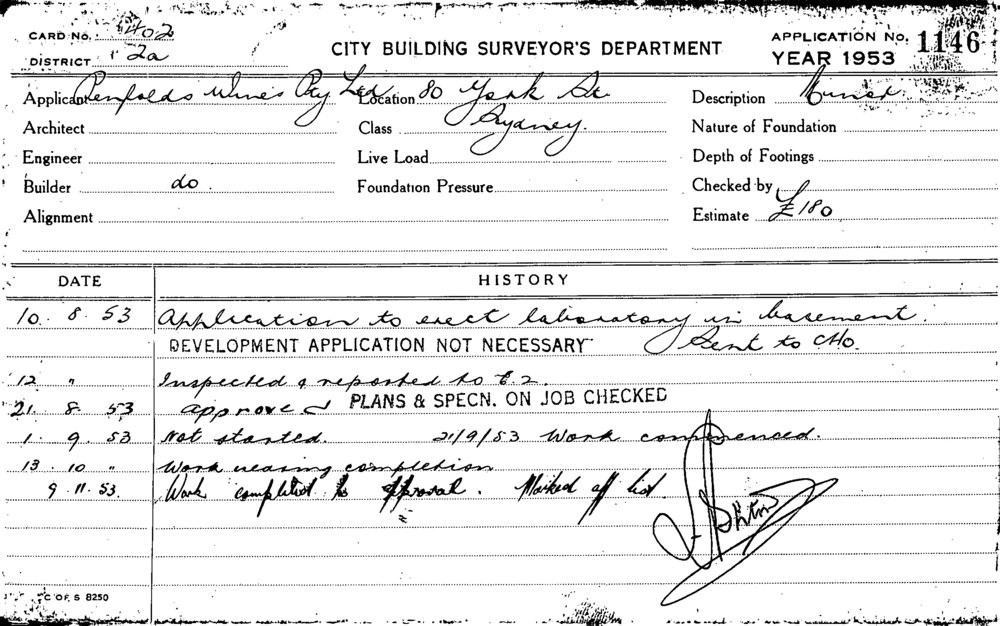 CARD No. 402
DISTRICT 2a
CITY BUILDING SURVEYOR'S DEPARTMENT
APPLICATION No. 1146
YEAR 1953
Applicant Penfolds Wines Pty Ltd Location 80 York St. Description Minor
Architect Class Sydney. Nature of Foundation
Engineer Live Load Depth of Footings
Builder do. Foundation Pressure Checked by
Alignment Estimate £180
DATE HISTORY
10. 8. 53 Application to erect laboratory in basement.
DEVELOPMENT APPLICATION NOT NECESSARY Sent to CHO.
12 " Inspected & reported to E.2.
21. 8. 53 approved PLANS & SPECN. ON JOB CHECKED
1. 9. 53 Not started. 21/9/53 Work commenced.
13. 10 " Work nearing completion
9. 11. 53. Work completed to approval. Marked off list.
C OF S 8250